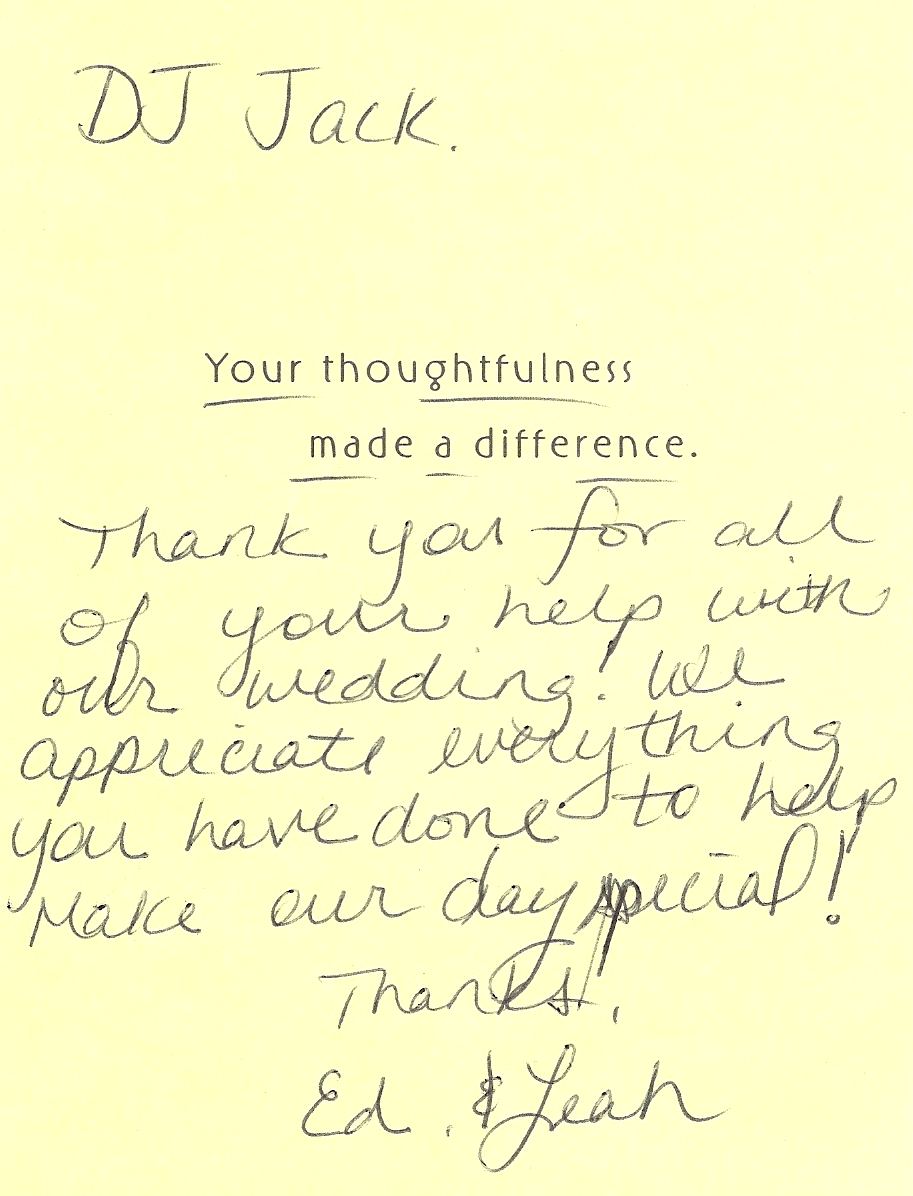 DJ Jack.
Your thoughtfulness
made a difference.
Thank you for all
of your help with
our wedding! We
appreciate everything
you have done to help
Make our day special!
Thanks,
Ed & Leah